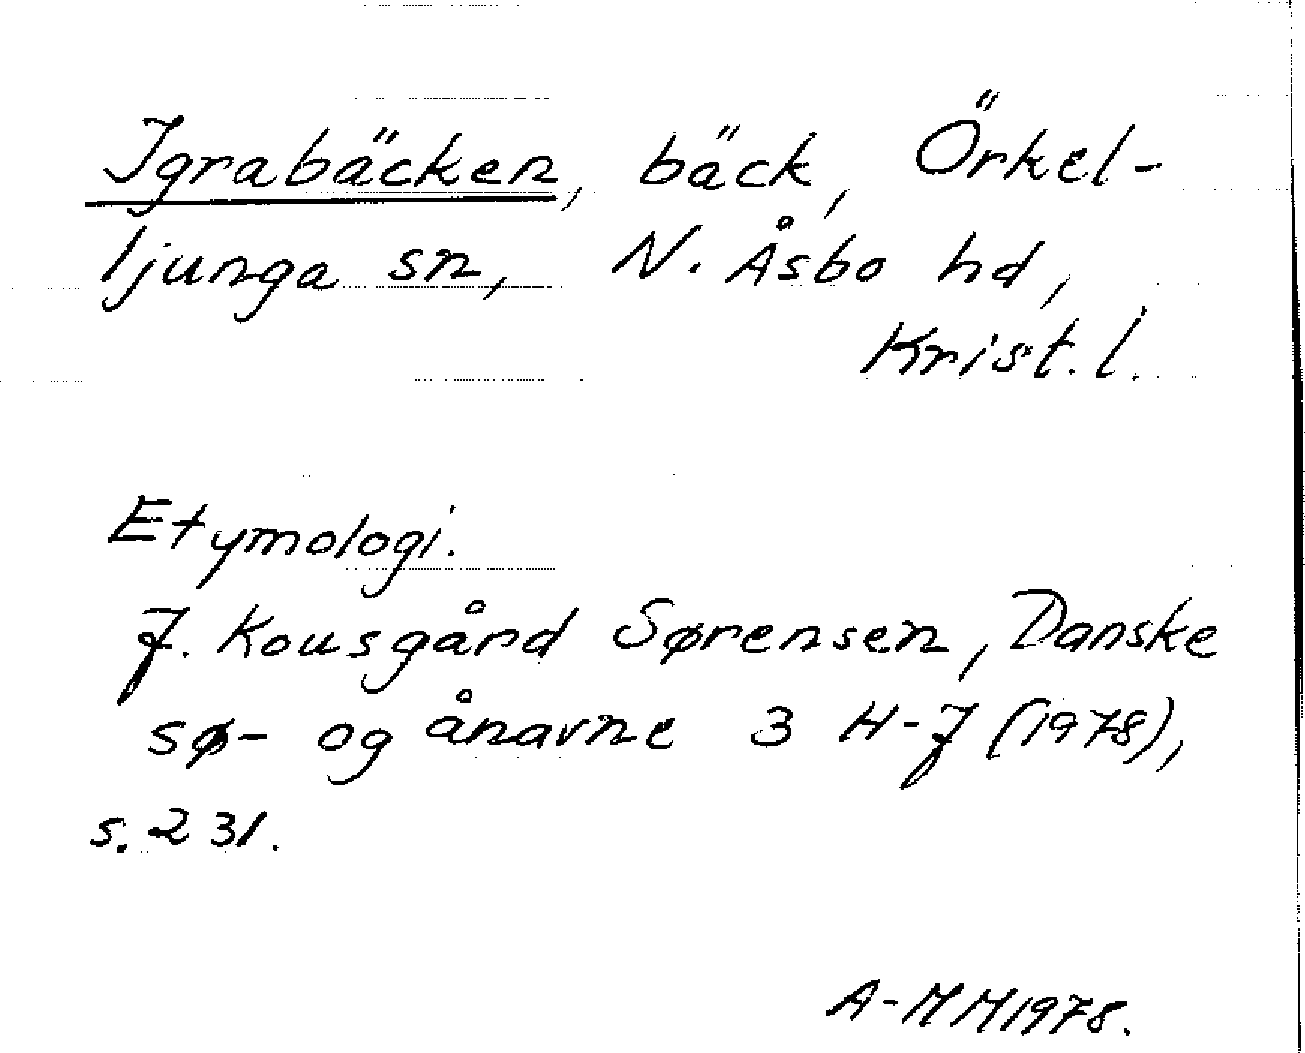 Igrabäcken, bäck, Örkel-
ljunga sn, N. Åsbo hd,
Krist. l.
Etymologi.
J. Kousgård Sørensen, Danske
sø- og ånavne 3 H-J (1978),
s. 231.
A-MM 1978.